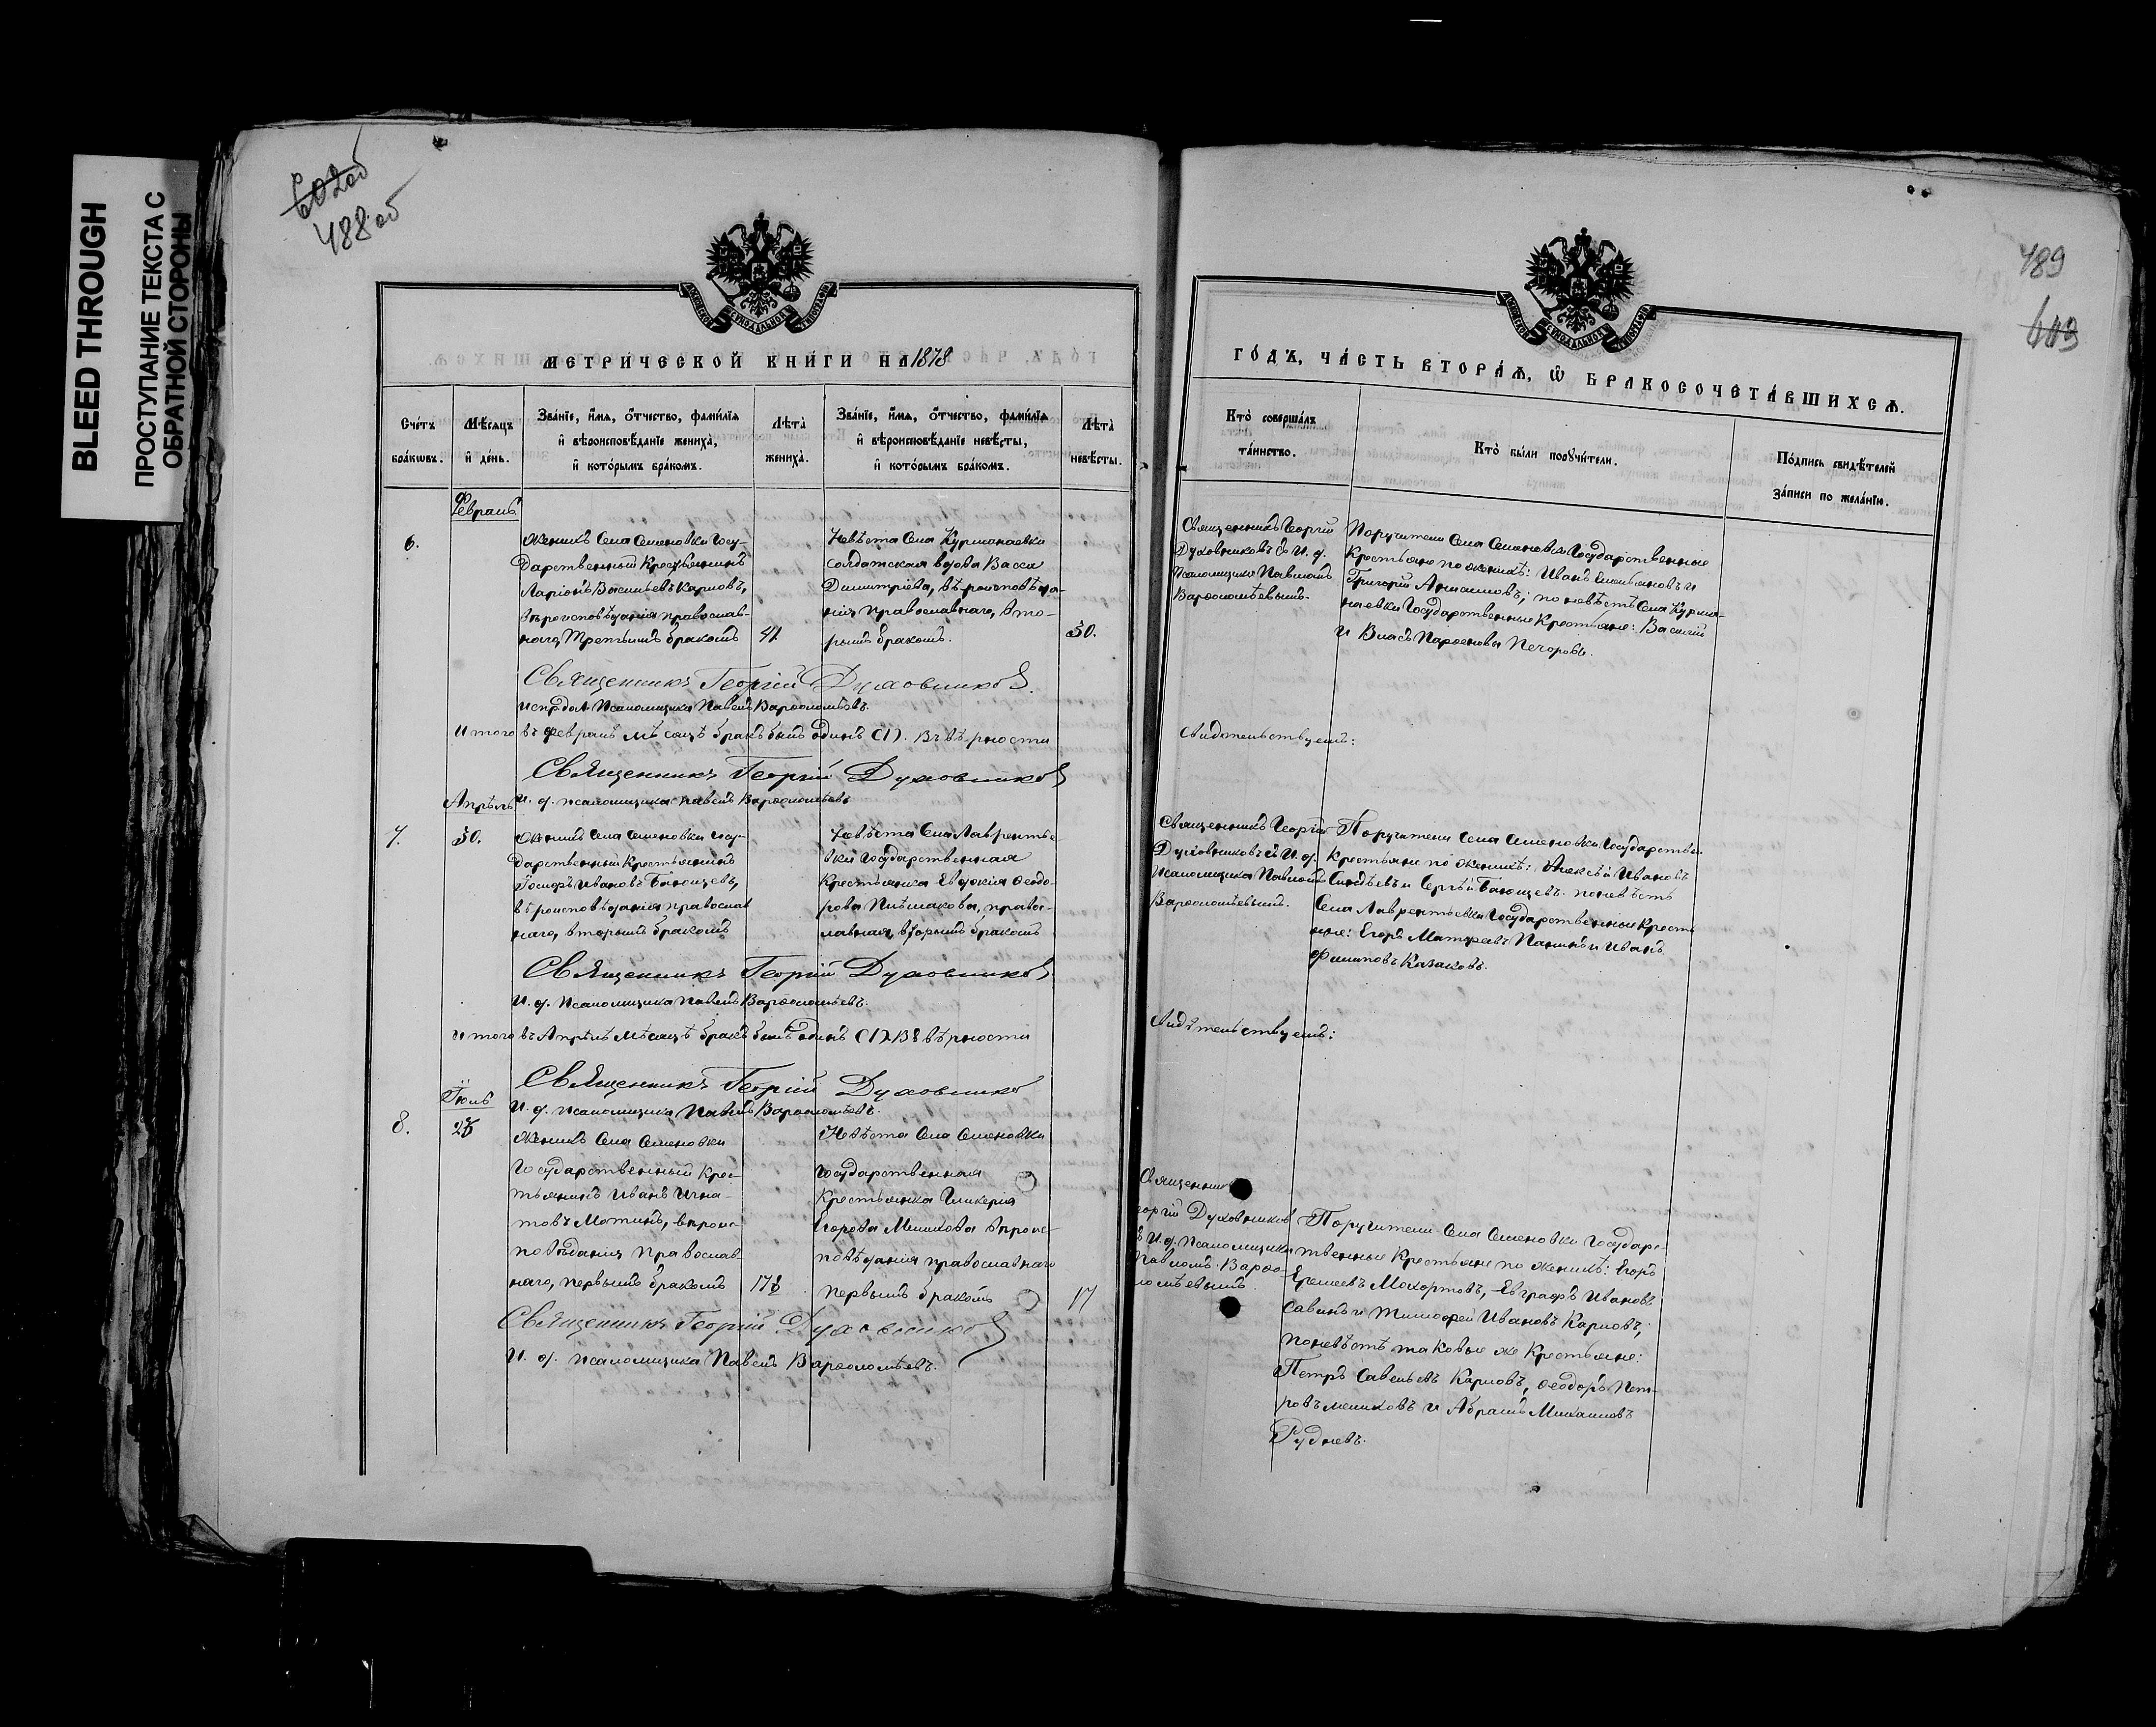 BLEED THROUGH
ПРОСТУПАНИЕ ТЕКСТА С
ОБРАТНОЙ СТОРОНЫ
602об
488об
МЕТРИЧЕСКОЙ КНИГИ НА 1878
Счетъ
браковъ.
Мѣсяцъ
и день.
Званіе, имя, отчество, фамилія
и вѣроисповѣданіе жениха,
и которымъ бракомъ.
Лѣта
жениха.
Званіе, имя, отчество, фамилія
и вѣроисповѣданіе невѣсты,
и которымъ бракомъ.
Лѣта
невѣсты.
Февраль
6.
Женихъ Села Семеновки Госу-
дарственный Крестьянинъ
Ларіонъ Васильевъ Карповъ,
вѣроисповѣданія православ-
наго, Третьимъ бракомъ
41
Невѣста Села Курманаевки
солдатская вдова Васса
Димитріева, вѣроисповѣда-
нія православнаго, вто-
рымъ бракомъ.
30.
Священникъ Георгій Духовниковъ.
Псаломщика Павелъ Варѳоломѣевъ.
Итого въ Февралѣ мѣсяцѣ бракъ былъ одинъ (1). Въ вѣрности
Священникъ Георгій Духовниковъ
И. д. псаломщика Павелъ Варѳоломѣевъ
Апрѣль
7.
30.
Женихъ Села Семеновки Госу-
дарственный Крестьянинъ
Іосифъ Ивановъ
вѣроисповѣданія православ
наго, вторымъ бракомъ
Невѣста Села Лаврентье
вки Государственная
Крестьянка Евдокія Ѳеодо-
рова, право-
лавная, вторымъ бракомъ
Священникъ Георгій Духовниковъ
И. д. псаломщика Павелъ Варѳоломѣевъ.
Итого въ Апрѣлѣ мѣсяцѣ бракъ былъ одинъ (1). Въ вѣрности
Священникъ Георгій Духовниковъ
И. д. псаломщика Павелъ Варѳоломѣевъ.
Іюль
8.
Женихъ Села Семеновки
Государственный Крес-
тьянинъ Иванъ Игна-
товъ Мотинъ, вѣроис-
повѣданія Православ-
наго, первымъ бракомъ
Невѣста Села Семеновки
Государственная
Крестьянка Гликерія
Егорова Мишкова вѣроис-
повѣданія православнаго
первымъ бракомъ
17
Священникъ Георгій Духовниковъ
И. д. псаломщика Павелъ Варѳоломѣевъ.
489
603
ГОДЪ, ЧАСТЬ ВТОРАЯ, Ѡ БРАКОСОЧЕТАВШИХСЯ.
Кто совершалъ
таинство.
Кто были поручители.
Подпись свидѣтелей
записи по желанію.
Священникъ Георгій
Духовниковъ съ И. д.
Псаломщика Павломъ
Варѳоломѣевымъ.
Поручители Села Семеновки Государственные
Крестьяне по женихѣ: Иванъ Емельяновъ и
Григорій; по невѣстѣ Села Курма-
наевки Государственные Крестьяне: Василій
и Власъ Парѳеновы Печоровы.
Свидѣтельствуемъ:
Священникъ Георгій
Духовниковъ съ И. д.
псаломщика Павломъ
Варѳоломѣевымъ.
Поручители Села Семеновки Государствен
Крестьяне по женихѣ: Алексѣй Ивановъ
и Сергѣй. по невѣстѣ
Села Лаврентьевки Государственные Кресть
яне: Егоръ Матвѣевъ Панинъ и Иванъ
Филиповъ Казаковъ.
Свидѣтельствуемъ:
Священникъ
еоргій Духовниковъ
съ И. д. Псаломщика
Павломъ Варѳо-
ломѣевымъ.
Поручители Села Семеновки Государс-
твенные Крестьяне по женихѣ: Егоръ
Еремеевъ Мокортовъ, Евграфъ Ивановъ
Савинъ и Тимофей Ивановъ Карповъ;
по невѣстѣ таковые же Крестьяне:
Петръ Савельевъ Карповъ, Ѳеодоръ Пет-
ровъ Мешковъ и Абрамъ Михаиловъ
Рудневъ.